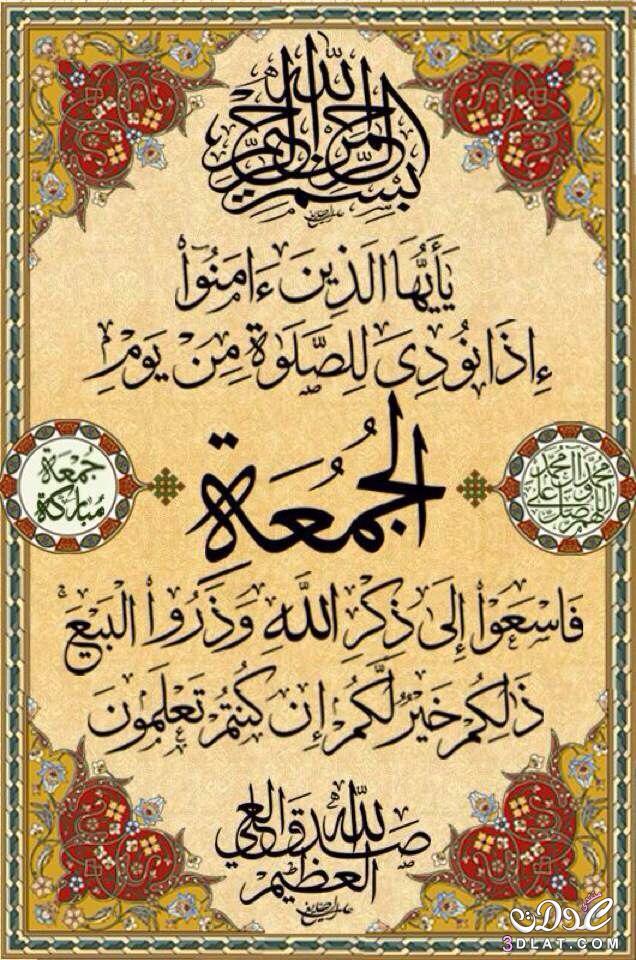 بسم الله الرحمن الرحيم
يَٰٓأَيُّهَا الَّذِينَ ءَامَنُوٓا۟
إِذَا نُودِىَ لِلصَّلَوٰةِ مِن يَوْمِ
الْجُمُعَةِ
جُمعَة
مُباركَة
اللهم صل على محمد وآل محمد
فَاسْعَوْا۟ إِلَىٰ ذِكْرِ اللَّهِ وَذَرُوا۟ الْبَيْعَ ۚ
ذَٰلِكُمْ خَيْرٌ لَّكُمْ إِن كُنتُمْ تَعْلَمُونَ
صدق الله العلي
العظيم
منتدى عدلات
3DLAT.COM